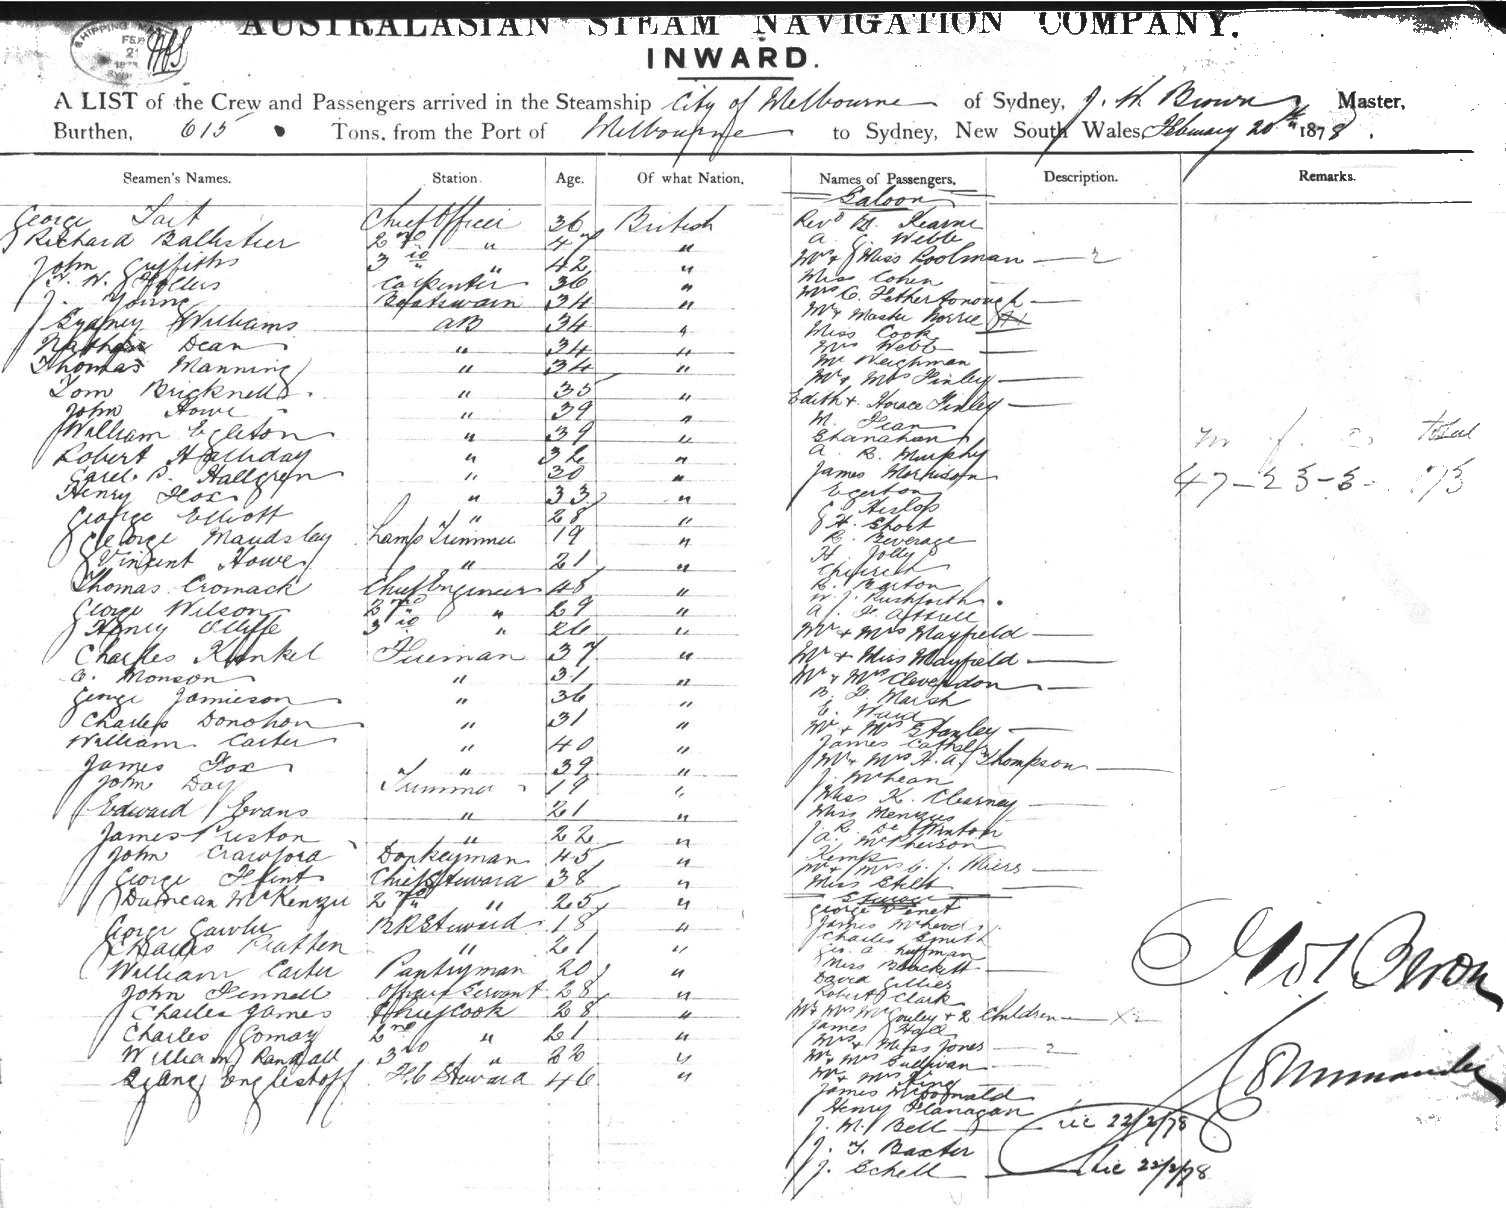 AUSTRALASIAN STEAM NAVIGATION COMPANY.
INWARD.
A LIST of the Crew and Passengers arrived in the Steamship City of Melbourne of Sydney, J. W. Brown Master,
Burthen, 615 Tons, from the Port of Melbourne to Sydney, New South Wales, February 20th 1878.
Seamen's Names. Station. Age. Of what Nation. Names of Passengers. Description. Remarks.
Saloon
George Tait Chief Officer 36 British
Richard Ballistier 2nd " 47 "
John Griffiths 3rd " 42 "
Carpenter 36 "
J. Young Boatswain 34 "
Sydney Williams AB 34 "
Nathan Dean " 34 "
Thomas Manning " 34 "
Tom Bricknell " 35 "
John Howe " 39 "
William Egleton " 39 "
Robert Halliday " 32 "
Carel B. Hallgren " 30 "
Henry Fox " 33 "
George Elliott " 28 "
George Maudslay Lamp Trimmer 19 "
Vincent Howe " 21 "
Thomas Cromack Chief Engineer 48 "
George Wilson 2nd " 29 "
Henry Olliffe 3rd " 26 "
Charles Kunkel Fireman 37 "
Monson " 31 "
George Jamieson " 36 "
Charles Donohon " 31 "
William Carter " 40 "
James Fox " 39 "
John Day Trimmer 19 "
Edward Evans " 21 "
James Preston " 22 "
John Crawford Donkeyman 45 "
George Flint Chief Steward 38 "
Duncan McKenzie 2nd " 25 "
George Gawler BR Steward 18 "
Charles Pratten " 21 "
William Carter Pantryman 20 "
John Fennell Officers Servant 28 "
Charles James Chief Cook 28 "
Charles Gomay 2nd " 21 "
William Randall 3rd " 22 "
F.C. Steward 46 "
Revd Kearne
A. C. Webb
Mr & Miss Poolman 2
Miss Cohen
Mrs C. Fetherstonough
Mr & Master Norrie
Miss Cook
Mrs Webb
Mr Weighman
Mr & Mrs Finley
Edith & Horace Finley
Shanahan
A. B. Murphy
James Morrison
Egerton
G. Hislop
H. Short
R. Beverage
H. Jolly
Church
R. Barton
W. J. Rushforth
Mr & Mrs Mayfield
Mr & Miss Mayfield
Mr & Mrs Clevendon
B. Marsh
E. Ward
Mr & Mrs Stanley
James
Mr & Mrs A. A. Thompson
J. McLean
Miss K. Clearney
Miss Menzies
R. De Winton
A. McPherson
Kemp
Mr & Mrs C. J. Miers
Miss Stilt
George Venet
James McLeod
Charles Smith
A. Huffman
Miss Brackett
David Gillies
Robert Clark
Mr & Mrs & 2 Children
James Hall
Mrs & Miss Jones 2
Mr & Mrs Sullivan
Mr & Mrs King
James McDonald
Henry Flanagan
J. M. Bell 22/2/78
J. T. Baxter
J. Schell 22/2/78
m f. total
47 - 23 - 5
Brown
Commander